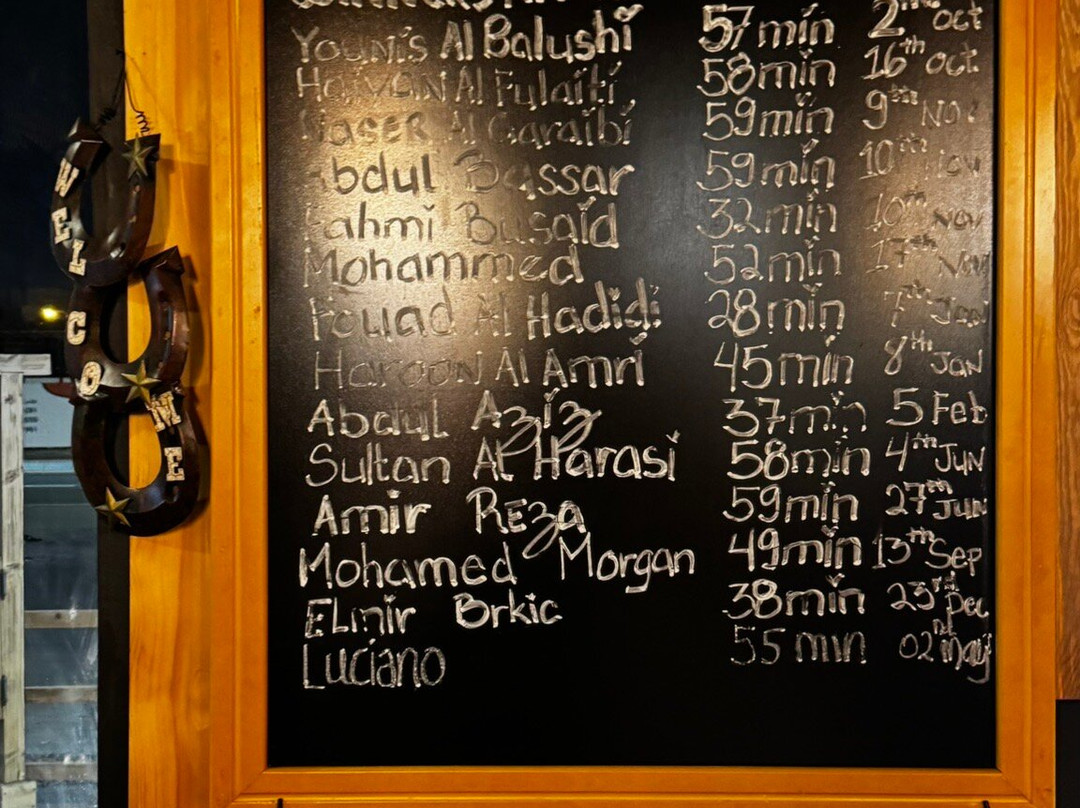 WELCOME
Younis Al Balushi 57min 2nd oct
Al Fulaiti 58min 16th oct
Naser Al Garaibi 59min 9th Nov
Abdul Bassar 59min 10th Nov
Fahmi Busaid 32min 10th Nov
Mohammed 52min 17th Nov
Fouad Al Hadidi 28min 7th Jan
Haroon Al Amri 45min 8th Jan
Abdul Aziz 37min 5 Feb
Sultan Al Harasi 58min 4th Jun
Amir Reza 59min 27th Jun
Mohamed Morgan 49min 13th Sep
ELmir Brkic 38min 23rd Dec
Luciano 55min 02nd may